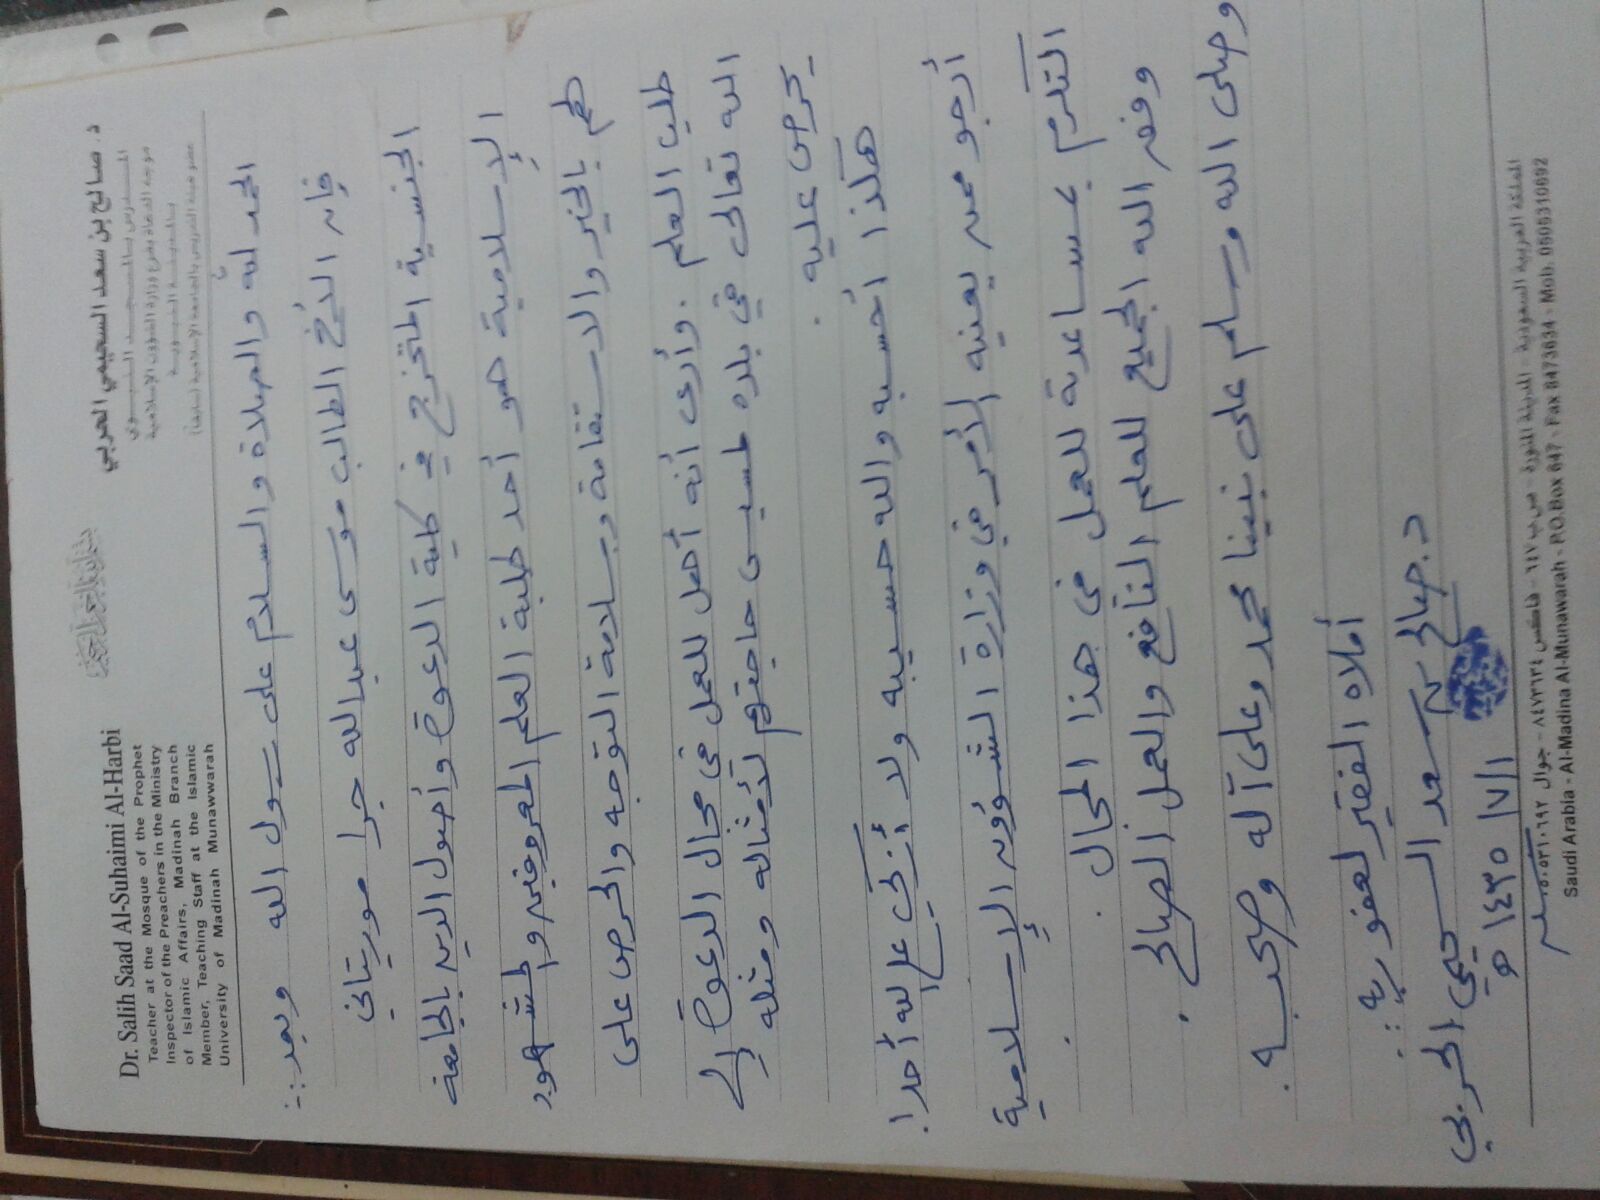 Dr. Salih Saad Al-Suhaimi Al-Harbi
Teacher at the Mosque of the Prophet
Inspector of the Preachers in the Ministry
of Islamic Affairs, Madinah Branch
Member, Teaching Staff at the Islamic
University of Madinah Munawwarah
د. صالح بن سعد السحيمي الحربي
المدرس بالمسجد النبوي
موجه الدعاة بفرع وزارة الشؤون الإسلامية
بالمدينة النبوية
عضو هيئة التدريس بالجامعة الإسلامية (سابقا)
الحمد لله والصلاة والسلام على رسول الله وبعد :-
فإن الأخ الطالب موسى عبدالله جرا موريتاني
الجنسية المتخرج في كلية الدعوة وأصول الدين بالجامعة
الإسلامية هو أحد طلبة العلم المعروفين والمشهود
لهم بالخير والاستقامة وسلامة التوجه والحرص على
طلب العلم . وأرى أنه أهل للعمل في مجال الدعوة إلى
الله تعالى في بلده لمسيس حاجتهم لأمثاله ومثله
يحرص عليه .
هكذا أحسبه والله حسيبه ولا أزكي على الله أحدا .
أرجو ممن يعنيه الأمر في وزارة الشؤون الإسلامية
التكرم بمساعدته للعمل في هذا المجال .
وفق الله الجميع للعلم النافع والعمل الصالح .
وصلى الله وسلم على نبينا محمد وعلى آله وصحبه .
أملاه الفقير لعفو ربه :
د. صالح بن سعد السحيمي الحربي
١/٧/١٤٣٥ هـ
المملكة العربية السعودية - المدينة المنورة - ص ب ٦٤٧ - فاكس ٨٤٧٣٦٣٤ - جوال ٠٥٠٥٣١٠٦٩٢
Saudi Arabia - Al-Madina Al-Munawarah - P.O.Box 647 - Fax 8473634 - Mob. 0505310692